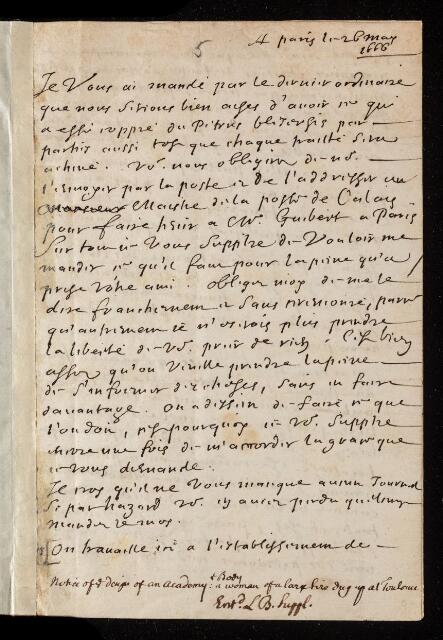 5
A paris le 26 may
1666
Je Vous ai mandé par le dernier ordinaire
que nous serions bien aises d'avoir ce qui
a esté coppié du Petrus blesensis par
parties aussi tost que chaque traitté sera
achevé. vo. nous obligeriez de no.
l'envoyer par la poste et de l'addresser au
Maistre de la poste de Calais
pour faire tenir a Mr. Guibert a Paris
Sur tout ie Vous Supplie de Vouloir me
mander ce qu'il faut pour la peine qu'a
prise vostre ami. obligez moy de me le
dire franchement et Sans ceremonie, parce
qu'autrement ie n'oserois plus prendre
la liberté de vo. prier de rien. C'est bien
assez qu'on Veuille prendre la peine
de S'informer des choses, Sans en faire
davantage. On a dessein de faire ce que
l'on doit, c'est pourquoy ie vo. Supplie
encore une fois de m'accorder la grace que
ie vous demande.
Je croy qu'il ne Vous manque aucun Journal
Si par hazard vo. en aviez perdu quelqu'un
mandez le moy.
[On travaille ici a l'establissement de
Notice of ye design of an Academy: + Body
a woman of a large size dug up at Toulouse
Entd. L.B. Suppl.